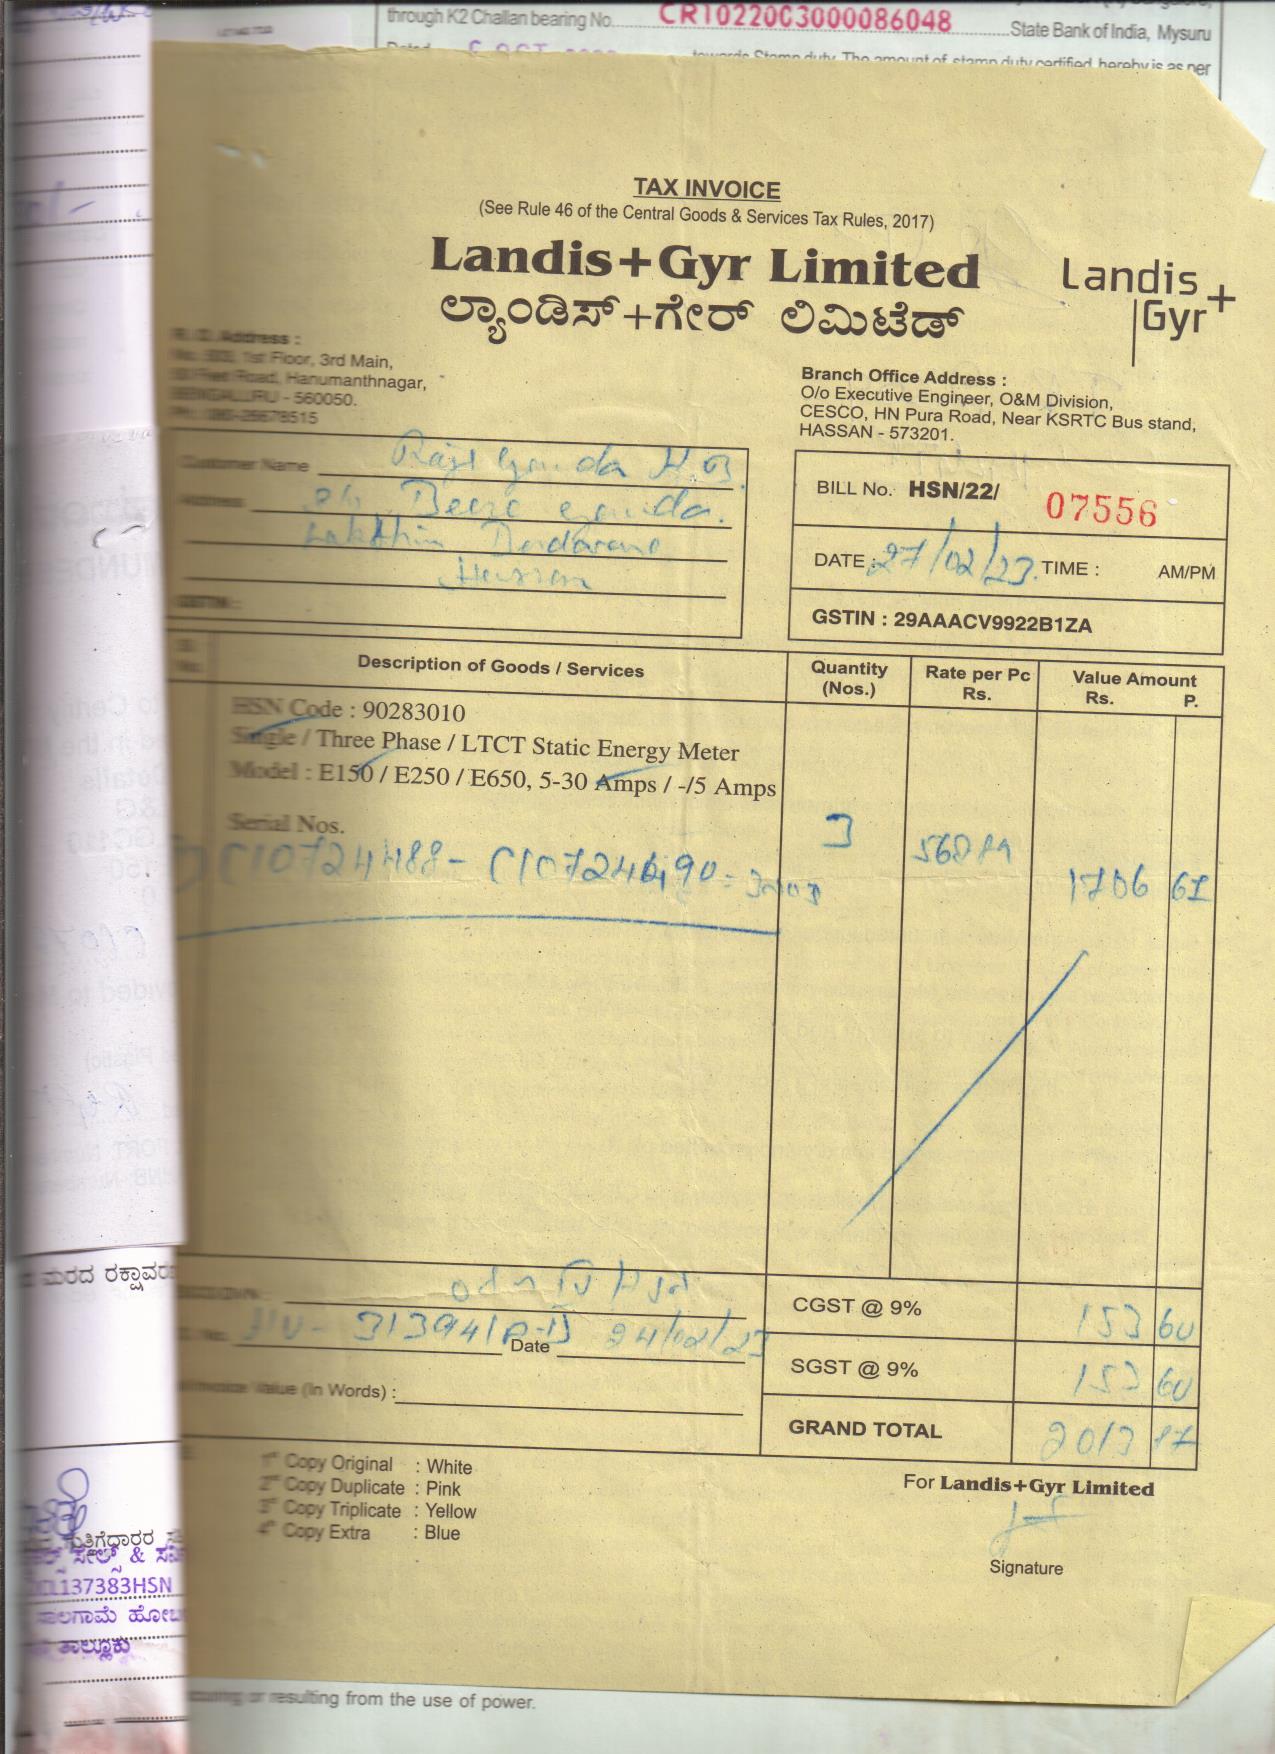 through K2 Challan bearing No. CR1022003000086048 State Bank of India, Mysuru
towards Stamp duty. The amount of stamp duty certified hereby is as per
TAX INVOICE
(See Rule 46 of the Central Goods & Services Tax Rules, 2017)
Landis+Gyr Limited
ಲ್ಯಾಂಡಿಸ್+ಗೇರ್ ಲಿಮಿಟೆಡ್
Landis+
Gyr
Address :
1st Floor, 3rd Main,
Road, Hanumanthnagar,
BENGALURU - 560050.
Branch Office Address :
O/o Executive Engineer, O&M Division,
CESCO, HN Pura Road, Near KSRTC Bus stand,
HASSAN - 573201.
Customer Name
Address
Hassan
GSTIN :
BILL No. HSN/22/ 07556
DATE : 27/02/23. TIME : AM/PM
GSTIN : 29AAACV9922B1ZA
Sl. No. Description of Goods / Services Quantity (Nos.) Rate per Pc Rs. Value Amount Rs. P.
HSN Code : 90283010
Single / Three Phase / LTCT Static Energy Meter
Model : E150 / E250 / E650, 5-30 Amps / -/5 Amps
Serial Nos.
C10724488 - C10724490 = 3nos 3 568.89 1706 67
CGST @ 9% 153 60
Date 24/02/23
SGST @ 9% 153 60
Invoice Value (In Words) :
GRAND TOTAL 2013 87
1st Copy Original : White
2nd Copy Duplicate : Pink
3rd Copy Triplicate : Yellow
4th Copy Extra : Blue
For Landis+Gyr Limited
Signature
ಮರದ
& 
1137383HSN
ಸಾಲಗಾಮೆ
ತಾಲ್ಲೂಕು
or resulting from the use of power.